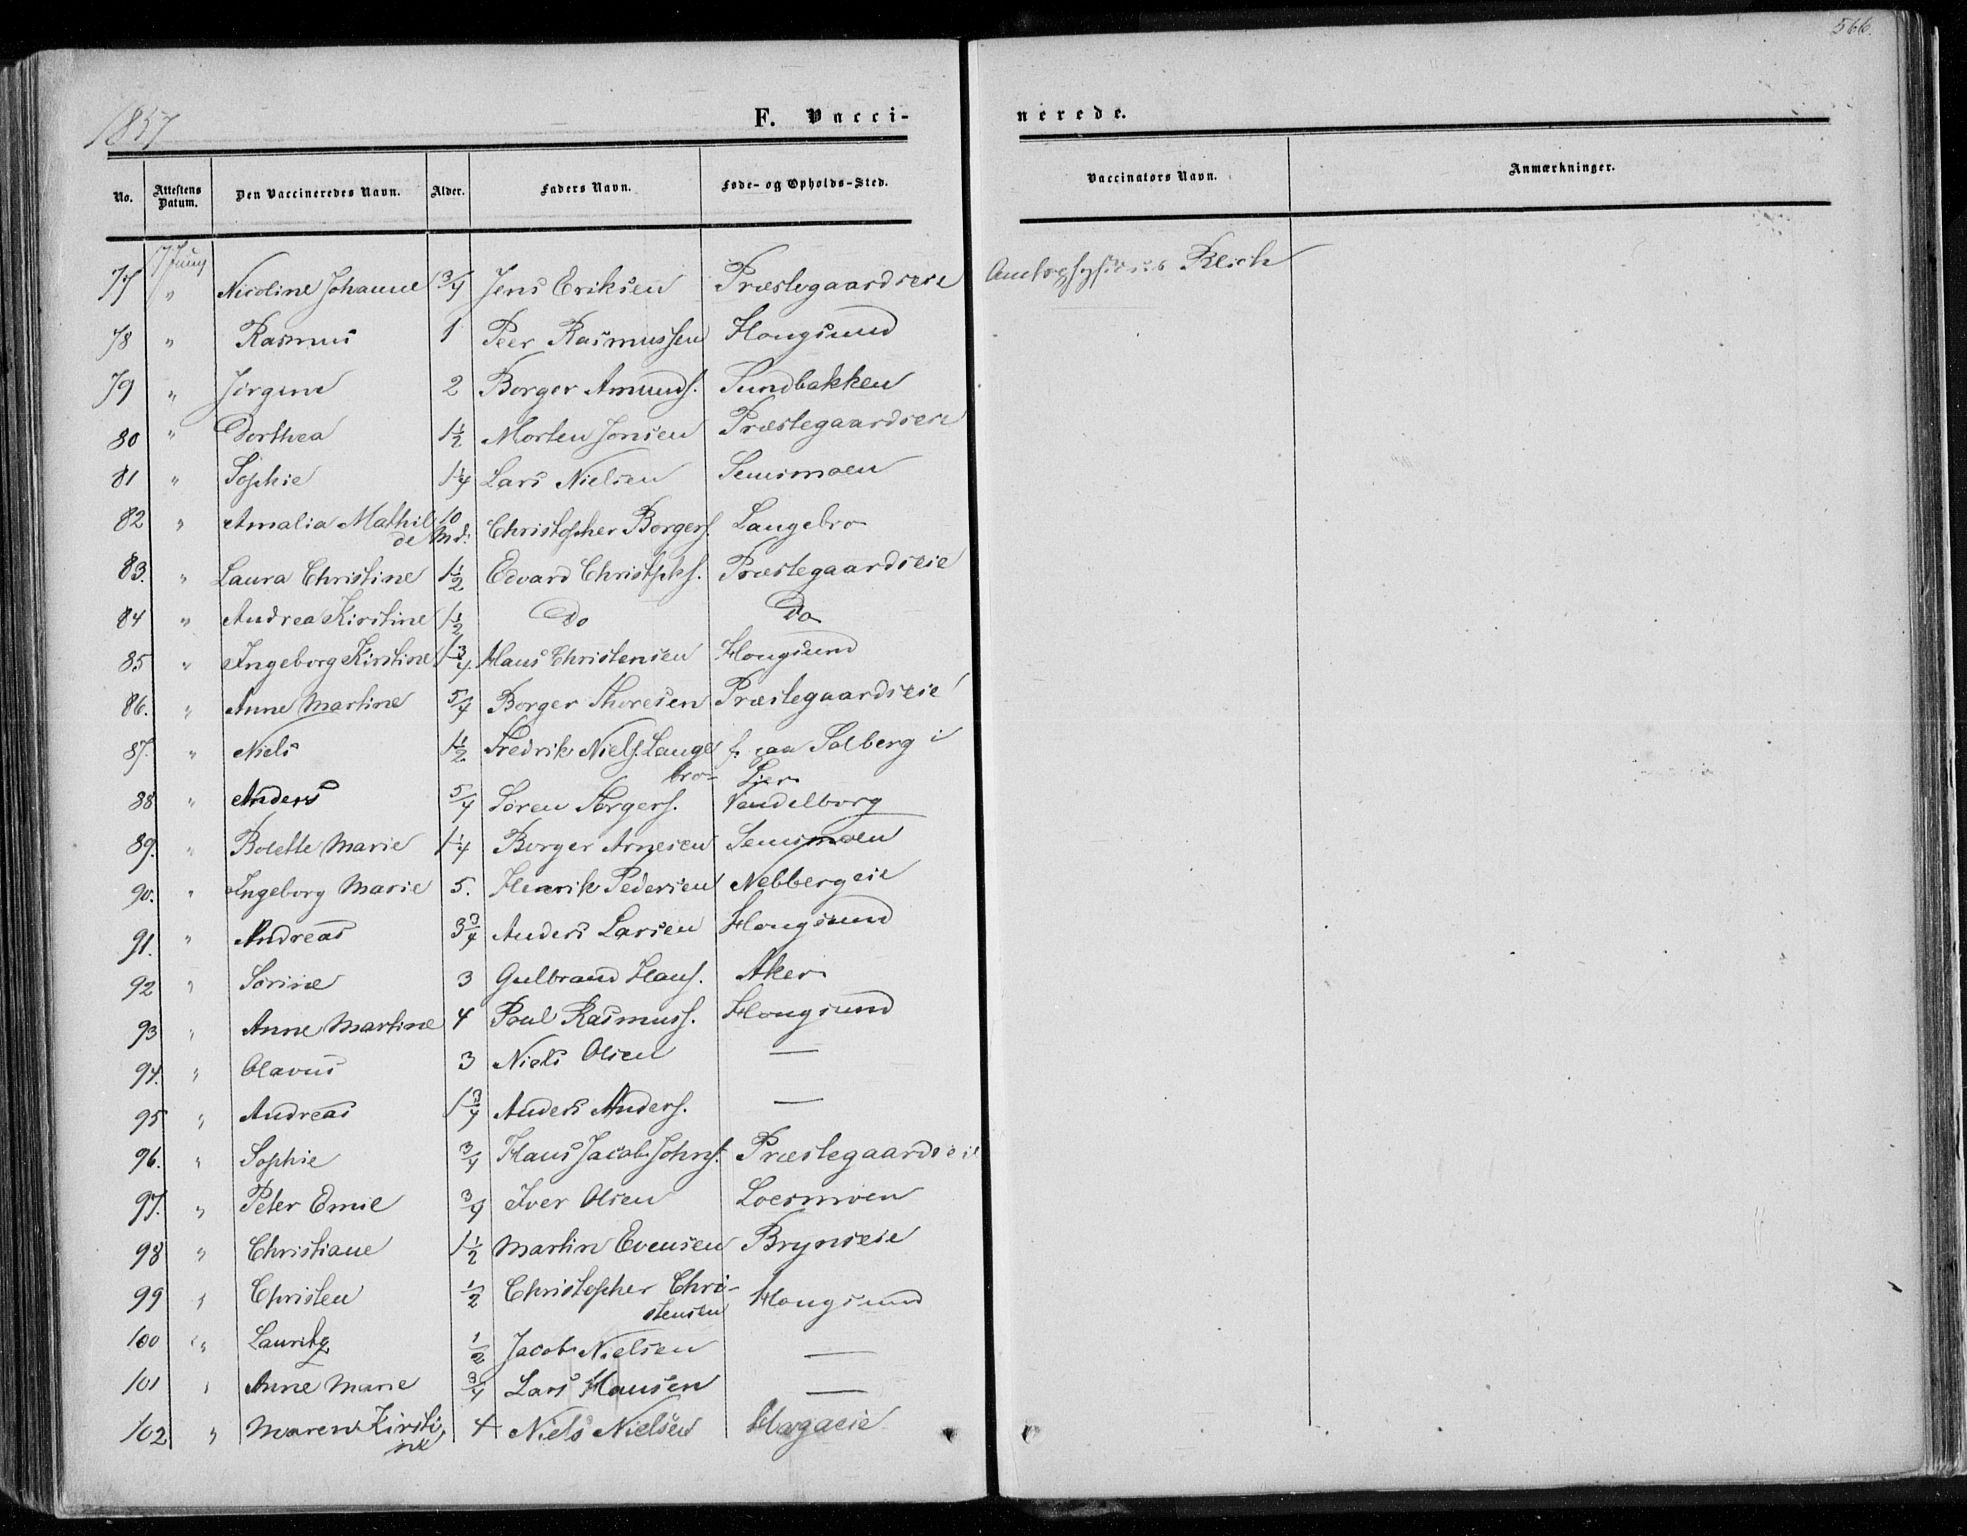 566.
1857
F. Vacci-
nerede.
No. Attestens Datum. Den Vaccineredes Navn. Alder. Faders Navn. Føde- og Opholds-Sted. Vaccinators Navn. Anmærkninger.
17 Juny
77 " Nicoline Johanne 3/4 Jens Eriksen Præstegaardseie Amtsphysicus Blich
78 " Rasmus 1 Peer Rasmussen Hougsund
79 " Jørgine 2 Borger Amunds. Sundbakken
80 " Dorthea 1 1/2 Morten Jonsen Præstegaardseie
81 " Sophie 1 1/4 Lars Nielsen Semsmoen
82 " Amalia Mathil 10 Christopher Borgers. Langebro
de Md:
83. " Laura Christine 1 1/2 Edvard Christphs. Præstegaardseie
84 " Andrea Kirstine 1 1/2 Do Do
85 " Ingeborg Kirstine 1 3/4 Hans Christensen Hougsund
86. " Anne Martine 5/4 Borger Thoresen Præstegaardseie
87. " Niels 1 1/2 Fredrik Niels. Lange f. paa Solberg i
bro Lier
88 " Anders 5/4 Søren Borgers. Vendelborg
89. " Bolette Marie 1 1/4 Borger Arnesen Semsmoen
90. " Ingeborg Marie 5. Henrik Pedersen Nebbergeie
91. " Andreas 3 3/4 Anders Larsen Hougsund
92 " Sørine 3 Gulbrand Hans. Aker
93 " Anne Martine 4 Poul Rasmuss. Hougsund
94. " Olavus 3 Niels Olsen —
95 " Andreas 1 3/4 Anders Anders. —
96. " Sophie 3/4 Hans Jacob Johns. Præstegaardseie
97. " Peter Emil 3/4 Iver Olsen Loesmoen
98 " Christiane 1 1/2 Martin Evensen Brynseie
99 " Christen 1/2 Christopher Chri-
stensen Hougsund
100 " Lauritz 1/2 Jacob Nielsen —
101 " Anne Marie 3/4 Lars Hansen —
102 " Maren Kirsti 4 Niels Nielsen Hagaeie
ne